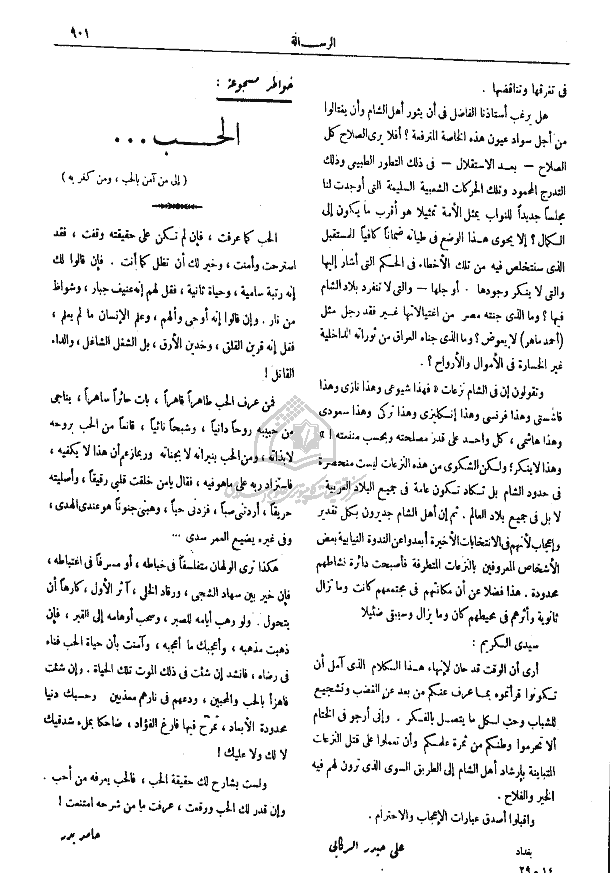 الرسالة
٩٠١
فى تفرقها وتناقضها .
هل يرغب أستاذنا الفاضل فى أن يثور أهل الشام وأن يقتالوا
من أجل سواد عيون هذه الخاصة المترفعة ؟ أفلا يرى الصلاح كل
الصلاح — بعد الاستقلال — فى ذلك التطور الطبيعى وذلك
التدرج المحمود وتلك الحركات الشعبية السليمة التى أوجدت لنا
مجلساً جديداً للنواب يمثل الأمة تمثيلا هو أقرب ما يكون إلى
الكمال ؟ ألا يحوى هذا الوضع فى طياته ضماناً كافياً للمستقبل
الذى سنتخلص فيه من تلك الأخطاء فى الحكم التى أشار إليها
والتى لا ينكر وجودها . أو جلها — والتى لا تنفرد بلاد الشام
فيها ؟ وما الذى جنته مصر من اغتيالاتها غير فقد رجل مثل
(أحمد ماهر) لا يعوض ؟ وما الذى جناه العراق من ثوراته الداخلية
غير الخسارة فى الأموال والأرواح ؟ .
وتقولون إن فى الشام نزعات « فهذا شيوعى وهذا نازى وهذا
فاشستى وهذا فرنسى وهذا إنكليزى وهذا تركى وهذا سعودى
وهذا هاشمى ، كل واحد على قدر مصلحته وبحسب منفعته ! »
وهذا لا ينكر؛ ولكن الشكوى من هذه النزعات ليست منحصرة
فى حدود الشام بل تكاد تكون عامة فى جميع البلاد العربية
لا بل فى جميع بلاد العالم . ثم إن أهل الشام جديرون بكل تقدير
وإعجاب لأنهم فى الانتخابات الأخيرة أبعدوا عن الندوة النيابية بعض
الأشخاص المعروفين بالنزعات المتطرفة فأصبحت دائرة نشاطهم
محدودة . هذا فضلا عن أن مكانتهم فى مجتمعهم كانت وما تزال
ثانوية وأثرهم فى محيطهم كان وما يزال وسيبقى ضئيلا
سيدى الكريم :
أرى أن الوقت قد حان لإنهاء هذا الكلام الذى آمل أن
تكونوا قرأتموه بما عرف عنكم من بعد عن الغضب وتشجيع
للشباب وحب لكل ما يتصل بالفكر . وإنى أرجو فى الختام
ألا تحرموا وطنكم من ثمرة علمكم وأن تعملوا على قتل النزعات
المتباينة بإرشاد أهل الشام إلى الطريق السوى الذى ترون لهم فيه
الخير والفلاح .
واقبلوا أصدق عبارات الإعجاب والاحترام .
بغداد
على حيدر الركابى
خواطر مسجوعة :
الحب ...
( إلى من آمن بالحب ، ومن كفر به )
الحب كما عرفت ، فإن لم تكن على حقيقته وقفت ، فقد
استرحت وأمنت ، وخير لك أن تظل كما أنت . فإن قالوا لك
إنه رتبة سامية ، وحياة ثانية ، فقل لهم إنه عنيف جبار ، وشواظ
من نار . وإن قالوا إنه أوحى وألهم ، وعلم الإنسان ما لم يعلم ،
فقل إنه قرين القلق ، وخدين الأرق ، بل الشغل الشاغل ، والداء
القاتل !
فمن عرف الحب طاهراً قاهراً ، بات حائراً ساهراً ، يناجى
من حبيبه روحاً دانياً ، وشبحاً نائياً ، قانعاً من الحب بروحه
لا بذاته ، ومن الحب بنيرانه لا بجناته . وربما زعم أن هذا لا يكفيه ،
فاستزاد ربه على ما هو فيه ، فقال يا من خلقت قلبى رقيقاً ، وأصليته
حريقاً ، أردتنى صباً ، فزدنى حباً ، وهبنى جنوناً هو عندى الهدى ،
وفى غيره يضيع العمر سدى ...
هكذا ترى الولهان متفلسفاً فى خباطه ، أو مسرفاً فى اغتباطه ،
فإن خير بين سهاد الشجى ، ورقاد الخلى ، آثر الأول ، كارهاً أن
يتحول . ولو رهب أيامه للصبر ، وسحب أوهامه إلى القبر ، فإن
ذهبت مذهبه ، وأعجبك ما أعجبه ، وآمنت بأن حياة الحب فناء
فى رضاه ، فانشد إن شئت فى ذلك الموت تلك الحياة . وإن شئت
فاهزأ بالحب والمحبين ، ودعهم فى نارهم معذبين وحسبك دنيا
محدودة الأبعاد ، تمرح فيها فارغ الفؤاد ، ضاحكا بملء شدقيك
لا لك ولا عليك !
ولست بشارح لك حقيقة الحب ، فالحب يعرفه من أحب .
وإن قدر لك الحب ووقعت ، عرفت ما من شرحه امتنعت !
حامد بدر